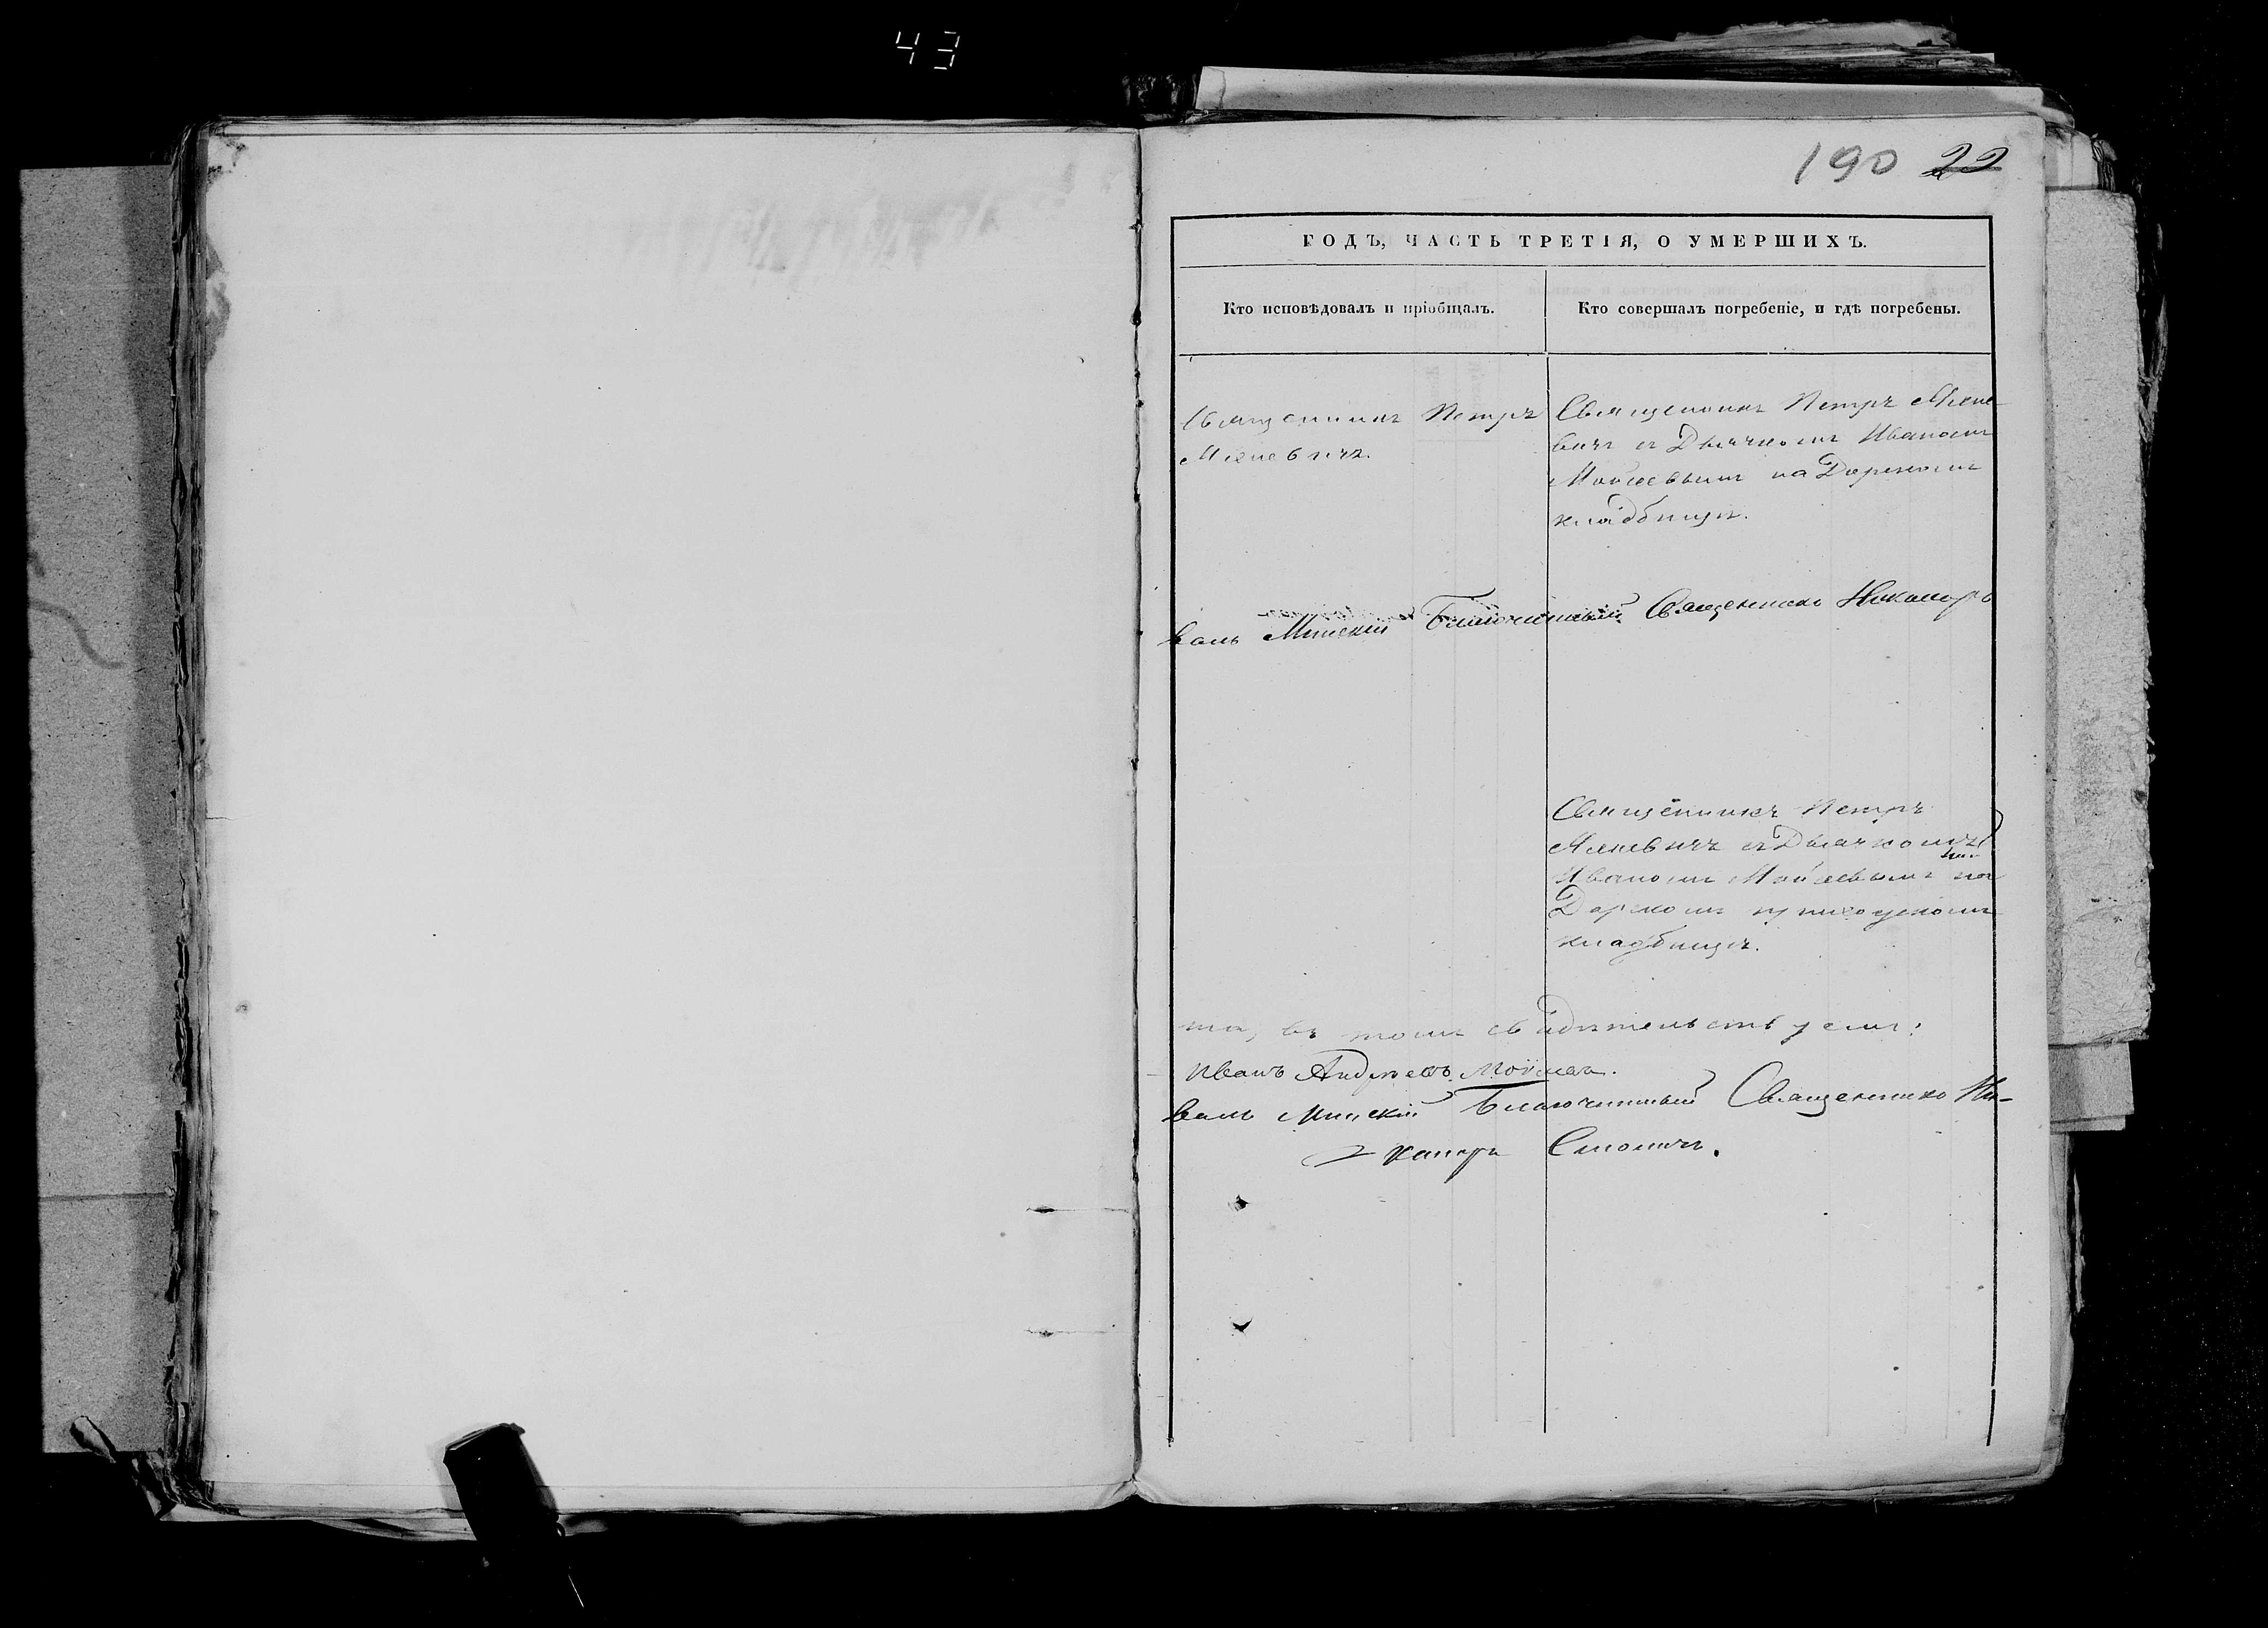 43
190 22
ГОДЪ, ЧАСТЬ ТРЕТІЯ, О УМЕРШИХЪ.
Кто исповѣдовалъ и пріобщалъ.
Кто совершалъ погребеніе, и гдѣ погребены.
Священникъ Петръ
Священникъ Петръ
вичъ съ Дьячкомъ Иваномъ
на Дорскомъ
кладбищѣ.
валъ Минскій Благочинный Священникъ Никаноръ
Священникъ Петръ
съ Дьячкомъ
Иваномъ на
Дорскомъ приходскомъ
кладбищѣ.
въ томъ свидѣтельствуемъ:
Иванъ Андреевъ
валъ Минскій Благочинный Священникъ Ни-
каноръ Смоличъ.